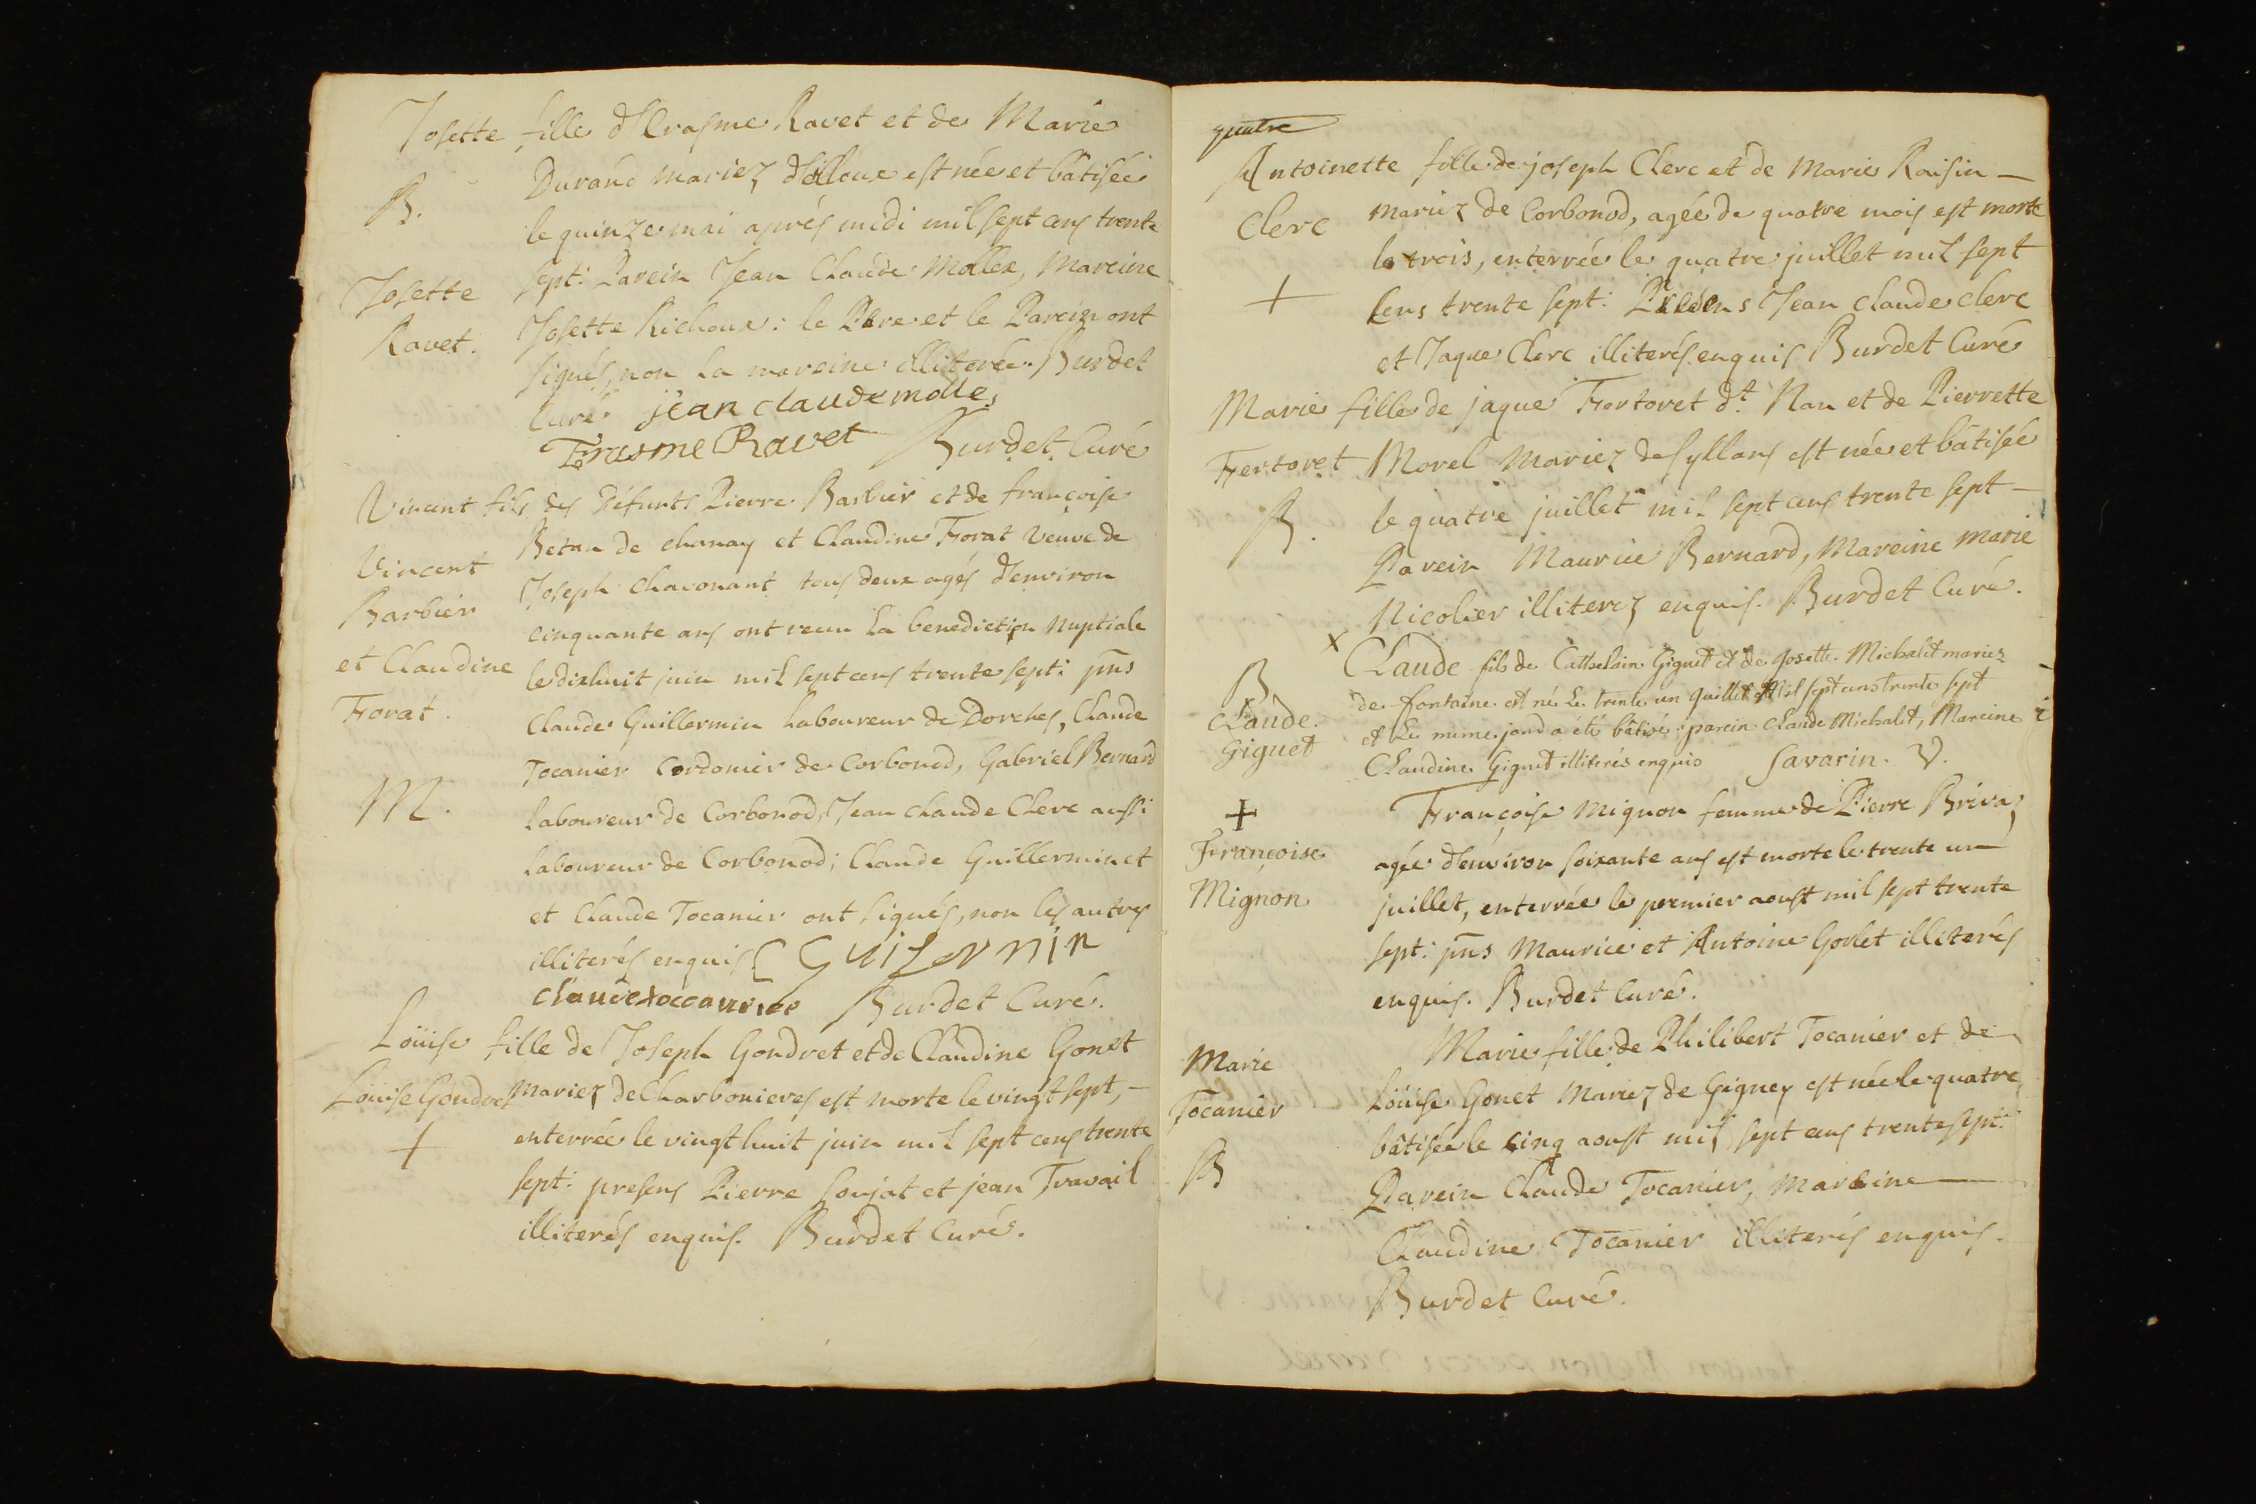 Josette fille d'Erasme Ravet et de Marie
B. Durand mariez d'olloux est née et bâtisée
le quinze mai aprés midi mil sept cens trente
Josette sept: Parein Jean Claude Mollex, Mareine
Ravet. Josette Richoux: le Pere et le Parein ont
signés, non la mareine illiterée. Burdet
Curé jean claude molle,
Erasme Ravet Burdet Curé
Vincent fils des défunts Pierre Barbier et de françoise
Vincent Betan de chanay et Claudine Forat veuve de
Barbier Joseph Chavonant tous deux agés d'environ
et Claudine cinquante ans ont recu la benediction Nuptiale
Forat. le dixhuit juin mil sept cens trente sept: pn̄s
Claude Guillermin laboureur de Dorches, Claude
Tocanier Cordonier de Corbonod, Gabriel Bernard
M. laboureur de Corbonod, Jean claude Clerc aussi
laboureur de Corbonod; Claude Guillermin et
et Claude Tocanier ont signés, non les autres
illiterés enquis C Guilermin
claude toccanier Burdet Curé.
Loüise fille de Joseph Gondret et de Claudine Gonet
Loüise Gondret mariez de Charbonieres est morte le vingt sept,
+ enterrée le vingt huit juin mil sept cens trente
sept: presens Pierre Sonjat et jean Travail
illiterés enquis. Burdet Curé.
quatre
Antoinette fille de joseph Clerc et de Marie Raisin
Clerc mariez de Corbonod, agée de quatre mois est morte
le trois, enterrée le quatre juillet mil sept
+ Cens trente sept: Jean claude clerc
et Jaque Clerc illiterés enquis Burdet Curé
Marie fille de jaque Fertoret dt. Nan et de Pierrette
Fertoret Morel Mariez de Syllans est née et bâtisée
B. le quatre juillet mil sept cens trente sept
Parein Maurice Bernard, Mareine marie
Nicolier illiterez enquis. Burdet Curé.
x Claude fils de Cathelain Giguet et de Josette Michalet mariez
B de fontaine est né le trente un Juillet Mil sept cens trente sept
Claude et le même jour a été bâtisé parein Claude Michalet, Mareine
Giguet Claudine Giguet illiterés enquis Savarin. V.
+ Françoise Mignon femme de Pierre Brivaz
Françoise agée d'environ soixante ans est morte le trente un
Mignon juillet, enterrée le premier aoust mil sept trente
sept: pn̄s Maurice et Antoine Gorlet illiterés
enquis. Burdet Curé.
Marie Marie fille de Philibert Tocanier et de
Tocanier Loüise Gonet Mariez de Gigney est née le quatre,
B bâtisée le cinq aoust mil sept cens trente sept:
Parein Claude Tocanier, Mareine
Claudine Tocanier illiterés enquis.
Burdet Curé.